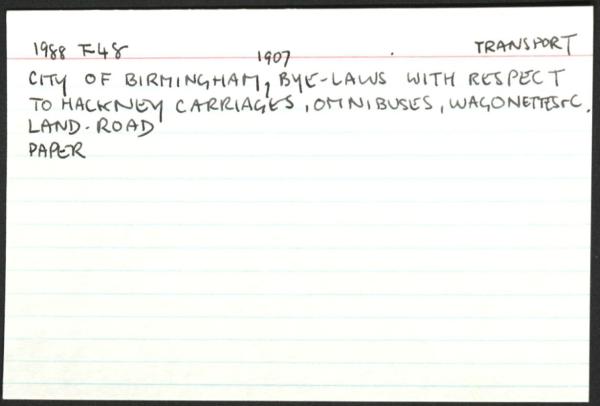 1988 F48 1907 TRANSPORT
CITY OF BIRMINGHAM, BYE-LAWS WITH RESPECT
TO HACKNEY CARRIAGES, OMNIBUSES, WAGONETTES &C.
LAND-ROAD
PAPER